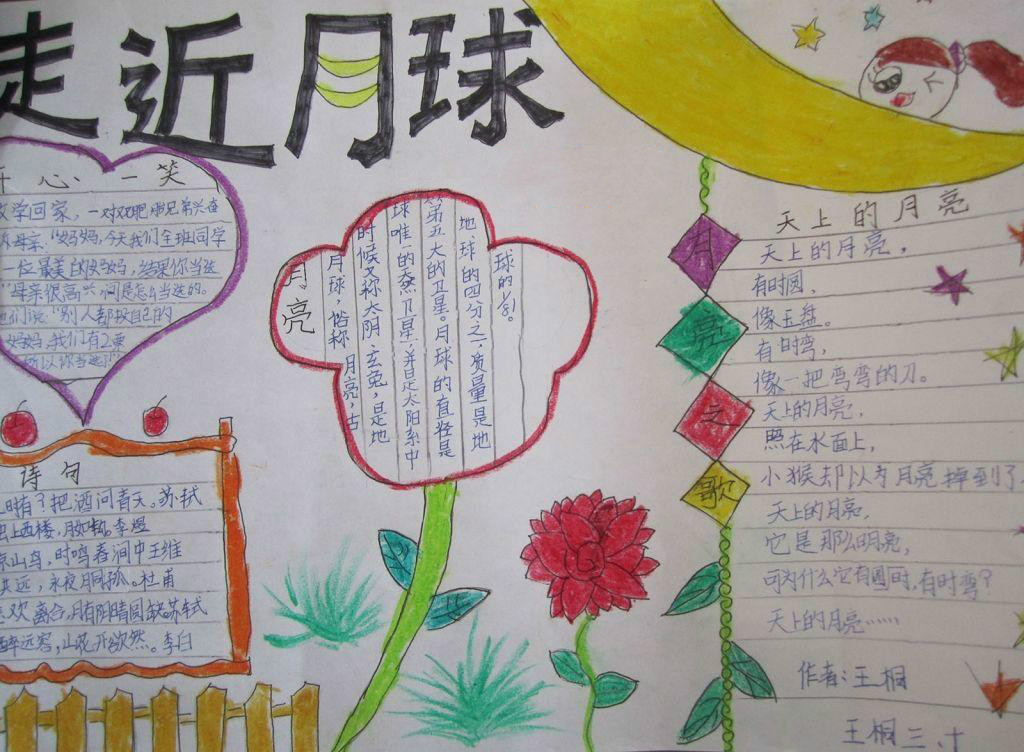 走近月球
开心一笑
放学回家，一对双胞胎兄弟兴奋
母亲："妈妈，今天我们全班同学
一位最美的妈妈，结果你当选
"母亲很高兴，问是怎么当选的。
他们说："别人都投自己的
妈妈，我们有2票
所以你当选了"
诗句
时有？把酒问青天。苏轼
上西楼，月如钩。李煜
山鸟，时鸣春涧中王维
永夜月同孤。杜甫
欢离合，月有阴晴圆缺苏轼
醉远客，山花开欲然。李白
月亮
月球，俗称 月亮，古
时候又称太阴 玄兔，是地
球唯一的天然卫星，并且是太阳系中
第五大的卫星。月球的直径是
地球的四分之一，质量是地
球的
月亮之歌
天上的月亮
天上的月亮，
有时圆，
像玉盘。
有时弯，
像一把弯弯的刀。
天上的月亮，
照在水面上，
小猴却以为月亮掉到了
天上的月亮，
它是那么明亮，
可为什么它有圆时，有时弯？
天上的月亮……
作者：王桐
王桐 三、十